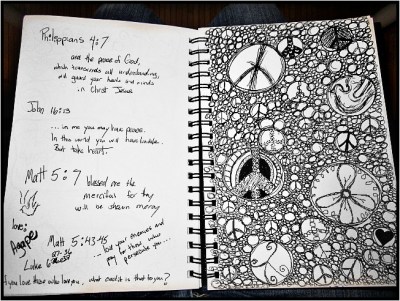 Philippians 4:7
and the peace of God,
which transcends all understanding,
will guard your hearts and minds
in Christ Jesus
John 16:33
... in me you may have peace.
In this world you will have trouble.
But take heart.
Matt 5:7 blessed are the
merciful for they
will be shown mercy
love:
Agape
Matt 5:43-45
... love your enemies and
pray for those who
persecute you ...
Luke 6:
if you love those who love you, what credit is that to you?